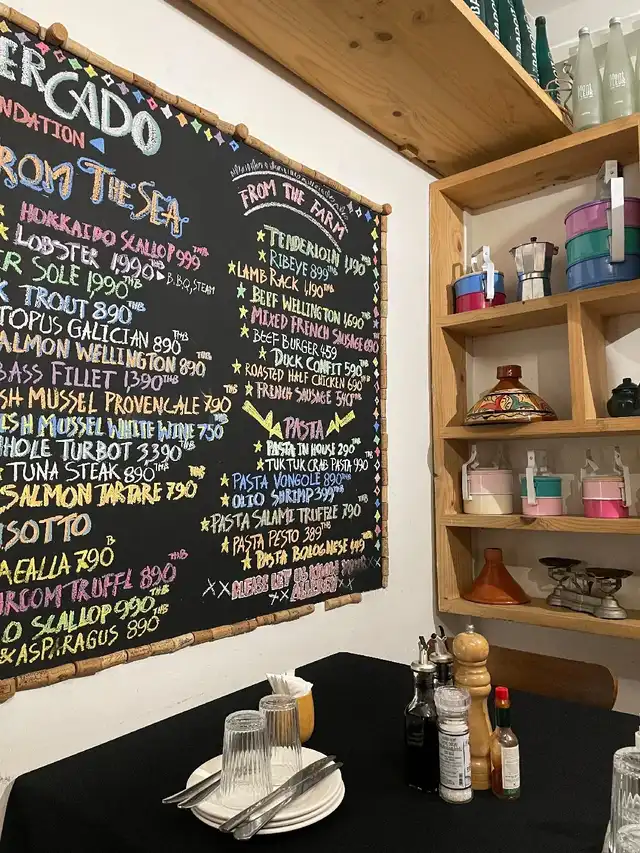 ERCADO
NDATION
FROM THE SEA
HOKKAIDO SCALLOP 999 THB
LOBSTER 1,990 THB ▸ B.B.Q, STEAM
ER SOLE 1990 THB
K TROUT 890 THB
TOPUS GALICIAN 890 THB
ALMON WELLINGTON 890 THB
BASS FILLET 1390 THB
SH MUSSEL PROVENCALE 790 THB
ISH MUSSEL WHITE WINE 750 THB
HOLE TURBOT 3390 THB
TUNA STEAK 890 THB
SALMON TARTARE 790 THB
ISOTTO
AEALLA 790 B
UROOM TRUFFL 890 THB
O SCALLOP 990 THB
& ASPARAGUS 890 THB
FROM THE FARM
TENDERLOIN 1,190 THB
RIBEYE 899 THB
LAMB RACK 1,190 THB
BEEF WELLINGTON 1,690 THB
MIXED FRENCH SAUSAGE 890
BEEF BURGER 459
DUCK CONFIT 590 THB
ROASTED HALF CHICKEN 690 THB
FRENCH SAUSAGE 540 THB
PASTA
PASTA IN HOUSE 290 THB
TUK TUK CRAB PASTA 990 THB
PASTA VONGOLE 890 THB
OLIO SHRIMP 399 THB
PASTA SALAMI TRUFFLE 790 THB
PASTA PESTO 389 THB
PASTA BOLOGNESE 449 THB
XX PLEASE LET US KNOW YOUR
XX ALLERGY XX